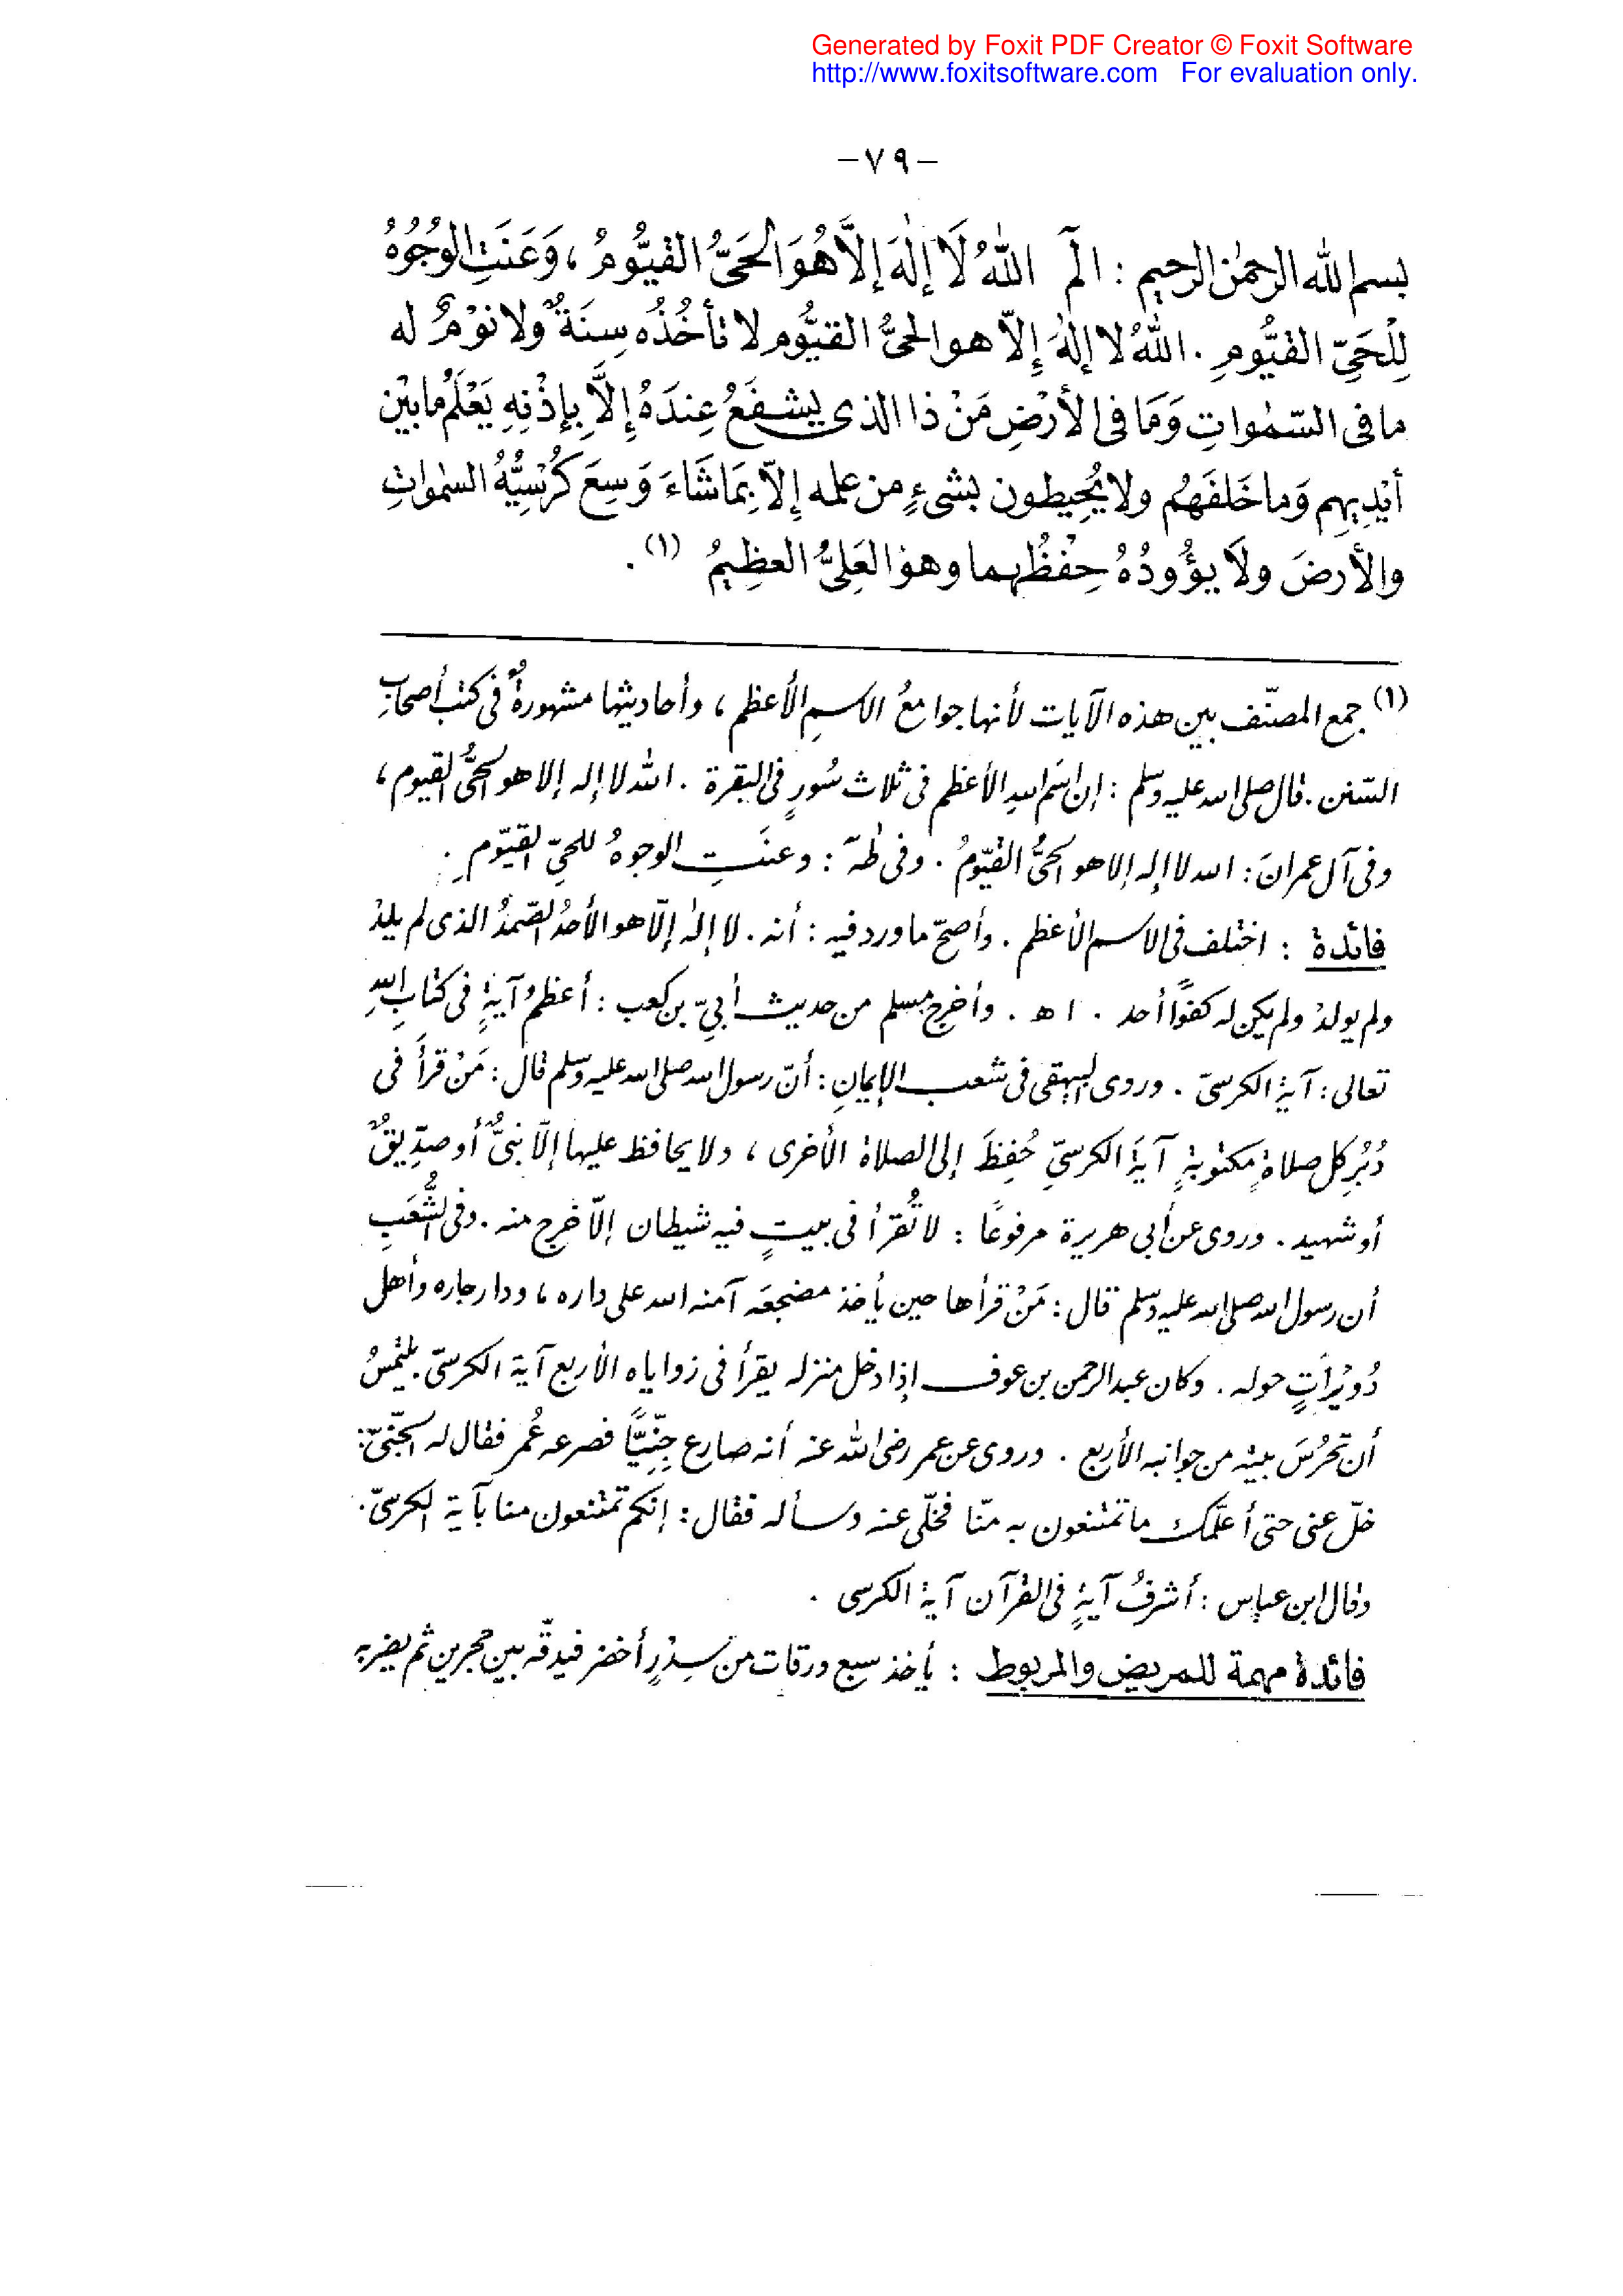 Generated by Foxit PDF Creator © Foxit Software
http://www.foxitsoftware.com For evaluation only.
-٧٩-
بسم الله الرحمٰن الرحيم : الٓمٓ اللهُ لَا إِلٰهَ إِلَّا هُوَ الحَىُّ القَيُّومُ ، وَعَنَتِ الوُجُوهُ
لِلْحَىِّ القَيُّومِ . اللهُ لا إلهَ إِلاّ هو الحىُّ القيُّوم لا تأخُذُه سِنَةٌ ولا نوْمٌ له
ما فى السّمٰواتِ وَمَا فى الأرْضِ مَنْ ذا الذى يشفَعُ عِندَهُ إِلاَّ بِإذْنِهِ يَعْلَمُ ما بيْن
أيْدِيهِم وَما خَلفَهُم ولا يُحِيطون بشىءٍ من علمه إِلاّ بِمَا شَاءَ وَسِعَ كُرْسِيُّهُ السمٰواتِ
والأرضَ ولَا يؤُودُهُ حِفْظُهما وهوَ العَلِىُّ العظِيمُ (١) .
(١) جمع المصنّف بين هذه الآيات لأنها جوامعُ الاسمِ الأعظم ، وأحاديثها مشهورةٌ فى كتب أصحابِ
السّنن . قال صلى الله عليه وسلم : إن اسَم اللهِ الأعظم فى ثلاث سُورٍ فى البقرة . الله لا إله إلا هو الحىُّ القيوم ،
وفى آل عمرانَ : الله لا إله إلا هو الحىُّ القيّومُ . وفى طٰهَ : وعنَتِ الوجوهُ للحىِّ القيّومِ .
فائدة : اختلف فى الاسم الأعظم . وأصحّ ما ورد فيه : أنه . لا إلٰهَ إلّا هو الأحدُ الصّمدُ الذى لم يلدْ
ولم يولدْ ولم يكن له كفوًا أحد . ا ه . وأخرج مسلم من حديث أبىّ بن كعب : أعظمُ آيةٍ فى كتابِ اللهِ
تعالى : آيةُ الكرسىّ . وروى البيهقى فى شعب الإيمانِ : أنّ رسول الله صلى الله عليه وسلم قال : مَنْ قرأَ فى
دُبُرِ كل صلاةٍ مكتوبةٍ آيةَ الكرسىِّ حُفِظَ إلى الصلاة الأخرى ، ولا يحافظ عليها إلّا نبىٌّ أو صدِّيقٌ
أو شهيد . وروى عن أبى هريرة مرفوعًا : لا تُقرأ فى بيتٍ فيه شيطان إلّا خرج منه . وفى الشُّعَبِ
أن رسول الله صلى الله عليه وسلم قال : مَنْ قرأها حين يأخذ مضجعَه آمنه الله على داره ، ودار جاره وأهل
دُويْرَاتٍ حوله . وكان عبد الرحمن بن عوف إذا دخل منزله يقرأ فى زواياه الأربع آية الكرسىّ يلتمِسُ
أن تحرُسَ بيته من جوانبه الأربع . وروى عن عمر رضى الله عنه أنه صارع جِنِّيًّا فصرعه عُمر فقال له الجنّىّ :
خلّ عنى حتى أعلّمك ما تمتنعون به منّا فخلّى عنه وسأله فقال : إنكم تمتنعون منا بآية الكرسىّ .
وقال ابن عباس : أشرفُ آيةٍ فى القرآن آية الكرسى .
فائدة مهمة للمريض والمربوط : يأخذ سبع ورقات من سِدْرٍ أخضر فيدقّه بين حجرين ثم يضربه